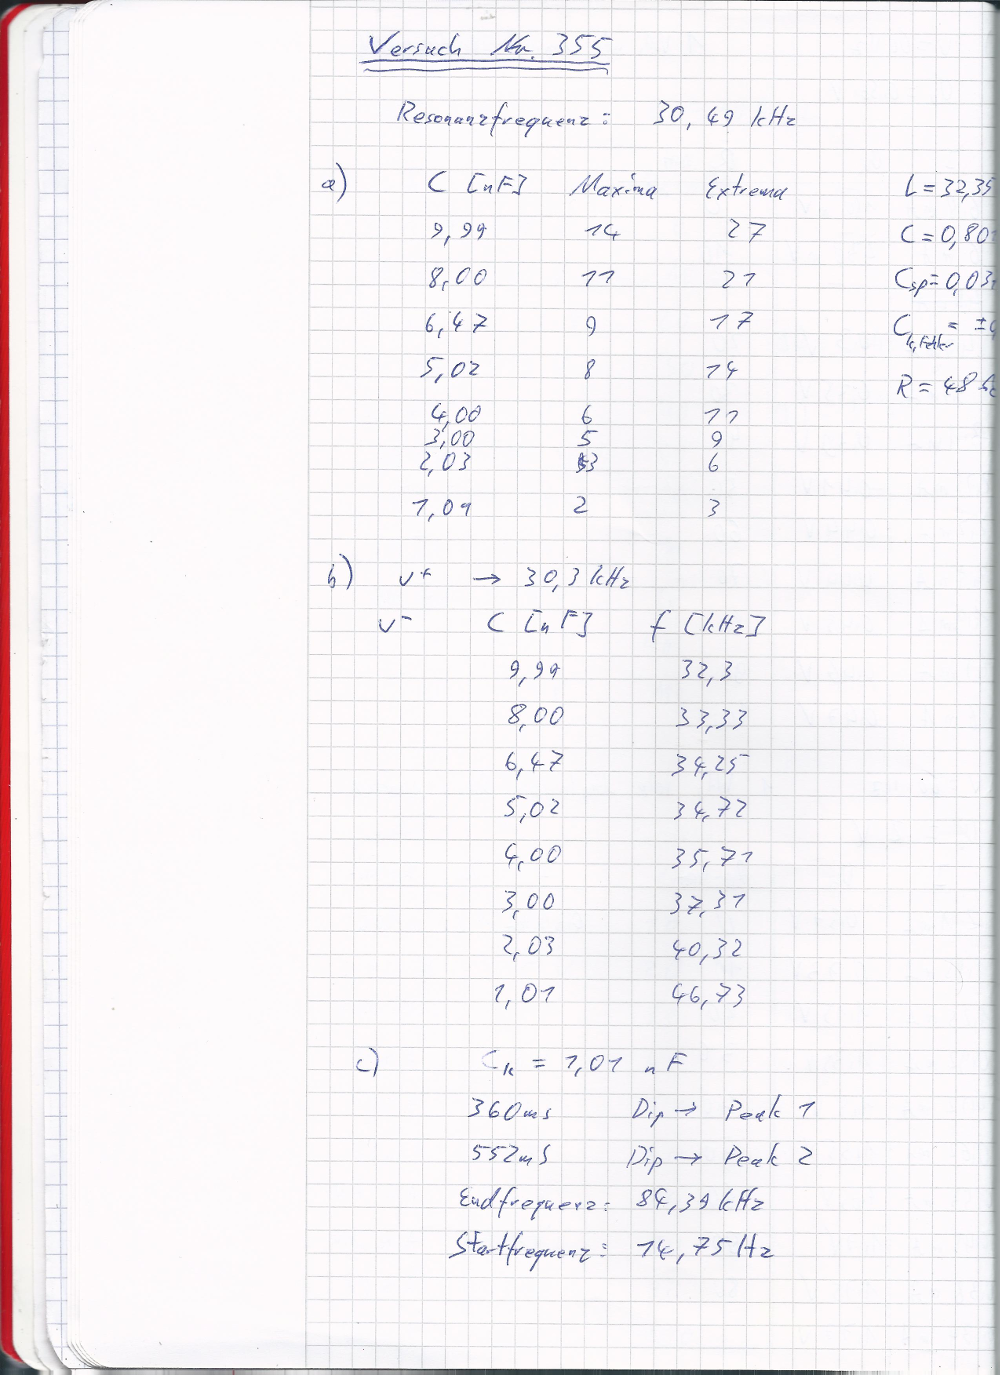 Versuch Nr. 355
Resonanzfrequenz: 30,49 kHz
a) C [nF] Maxima Extrema L = 32,35
9,99 14 27 C = 0,80
8,00 11 21 Csp = 0,03
6,47 9 17 Ck,Fehler = ±
5,02 8 14 R = 48
4,00 6 11
3,00 5 9
2,03 3 6
1,01 2 3
b) ν+ → 30,3 kHz
ν- C [nF] f [kHz]
9,99 32,3
8,00 33,33
6,47 34,25
5,02 34,72
4,00 35,71
3,00 37,31
2,03 40,32
1,01 46,73
c) Ck = 1,01 nF
360ms Dip → Peak 1
552mS Dip → Peak 2
Endfrequenz: 84,39 kHz
Startfrequenz: 14,75 Hz